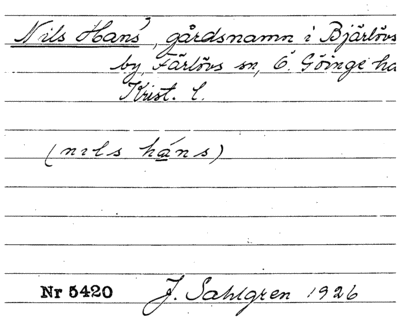 Nils Hans', gårdsnamn i Bjärlövs
by, Färlövs sn, Ö. Göinge ha
Krist. l.
(nils hans)
Nr 5420 J. Sahlgren 1926